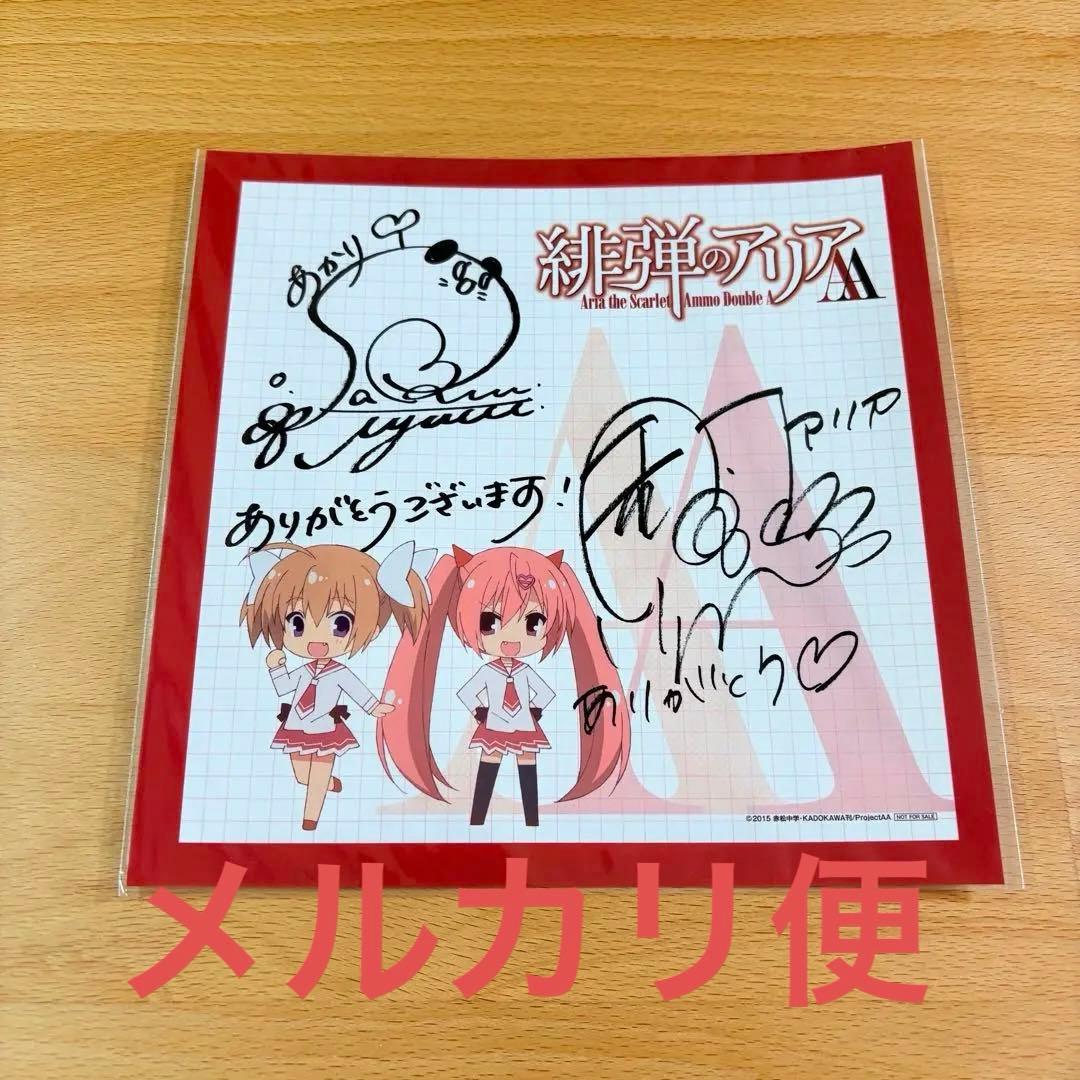 あかり
緋弾のアリアAA
Aria the Scarlet Ammo Double A
アリア
ありがとうございます!
ありがとう♡
©2015 赤松中学・KADOKAWA刊/ProjectAA NOT FOR SALE
メルカリ便